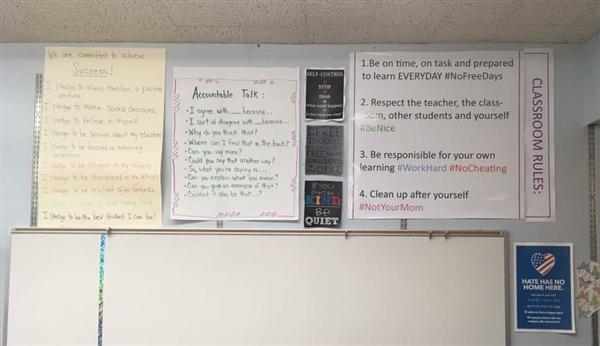 We are committed to achieve
Success!
I pledge to always maintain a positive
attitude
I pledge to make sound decisions
I pledge to believe in myself
I pledge to be serious about my education
I pledge to be focused on achieving
excellence
I pledge to be diligent in my efforts
I pledge to be disciplined in my actions
I pledge to be
I pledge to be the best student I can be!
Accountable Talk:
• I agree with ___ because...
• I sort of disagree with ___ because...
• Why do you think that?
• Where can I find that in the book?
• Can you say more?
• Could you say that another way?
• So, what you're saying is...
• Can you explain what you mean?
• Can you give an example of that?
• Couldn't it also be that...?
SELF-CONTROL
STOP
think
IF YOU
KIND
BE
QUIET
1.Be on time, on task and prepared
to learn EVERYDAY #NoFreeDays
2. Respect the teacher, the class-
room, other students and yourself
#BeNice
3. Be responisible for your own
learning #WorkHard #NoCheating
4. Clean up after yourself
#NotYourMom
CLASSROOM RULES:
HATE HAS NO
HOME HERE.